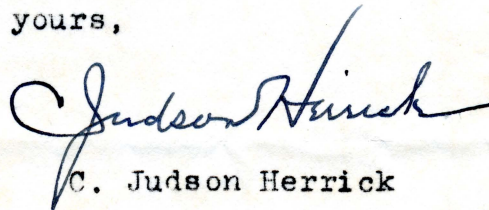 yours,
C Judson Herrick
C. Judson Herrick